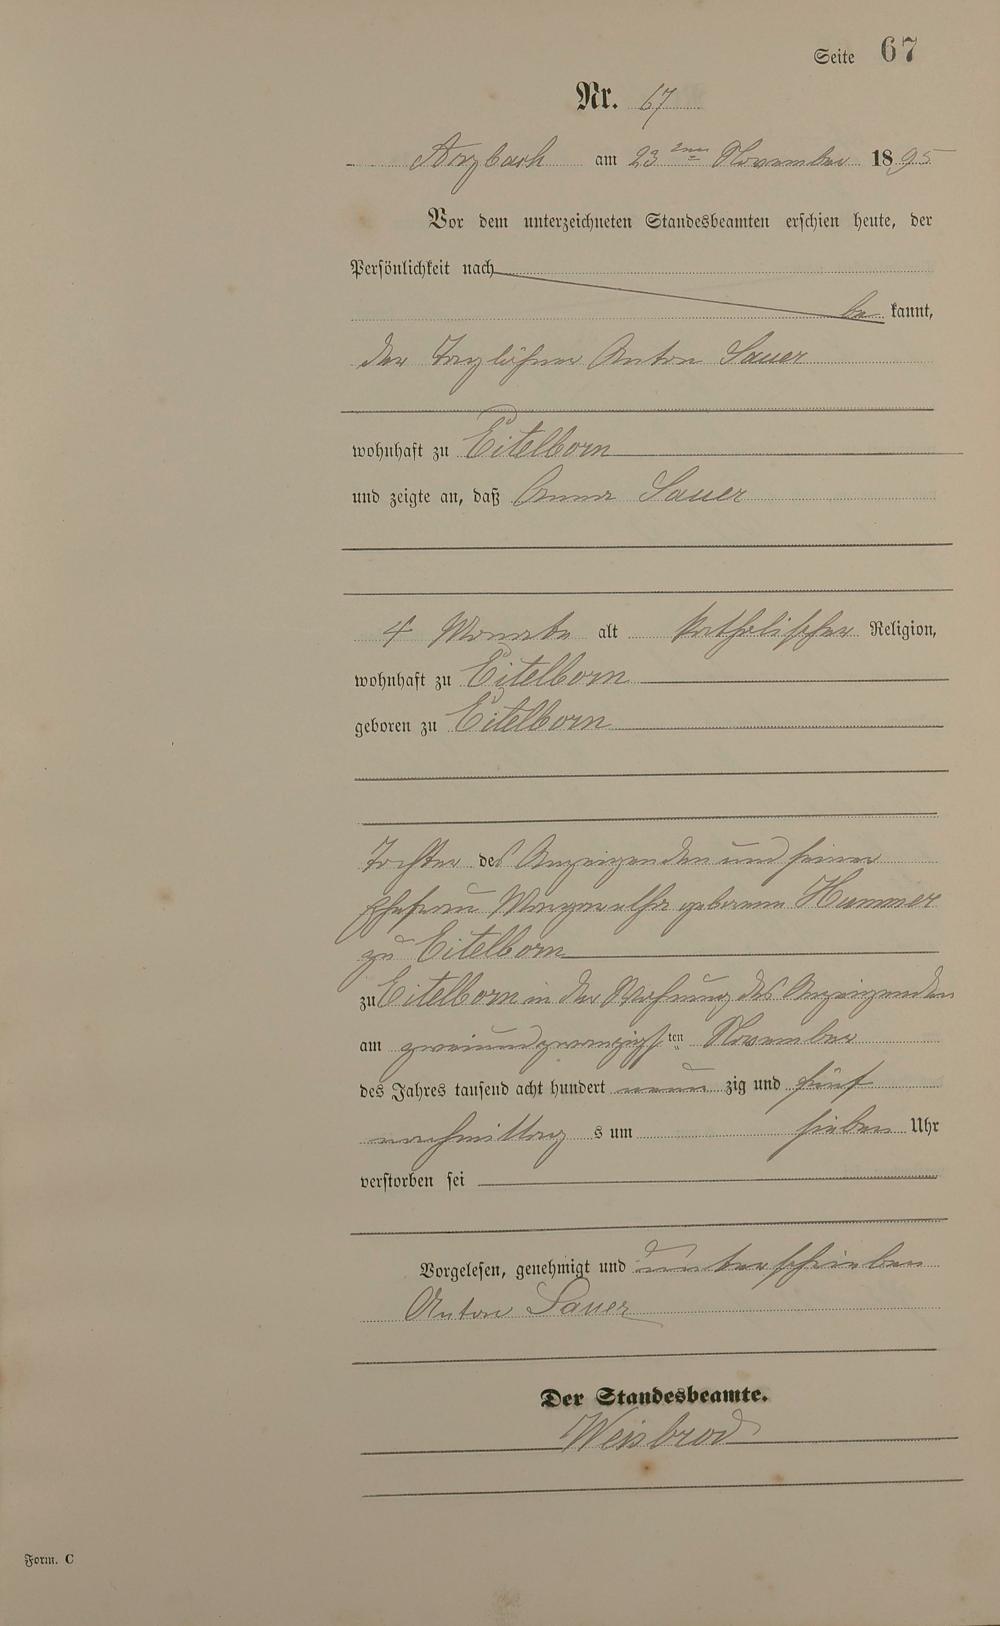 Seite 67
Nr. 67
Arzbach am 23 ten November 1895
Vor dem unterzeichneten Standesbeamten erschien heute, der
Persönlichkeit nach
be kannt,
der Taglöhner Anton Sauer
wohnhaft zu Eitelborn
und zeigte an, daß Anna Sauer
4 Monate alt katholischer Religion,
wohnhaft zu Eitelborn
geboren zu Eitelborn
Tochter des Anzeigenden und seiner
Ehefrau Margaretha geborene Hammer
zu Eitelborn
zu Eitelborn in der Wohnung des Anzeigenden
am zweiundzwanzigsten November
des Jahres tausend acht hundert neun zig und fünf
nachmittag s um sieben Uhr
verstorben sei
Vorgelesen, genehmigt und unterschrieben
Anton Sauer
Der Standesbeamte.
Weisbrod
Form. C